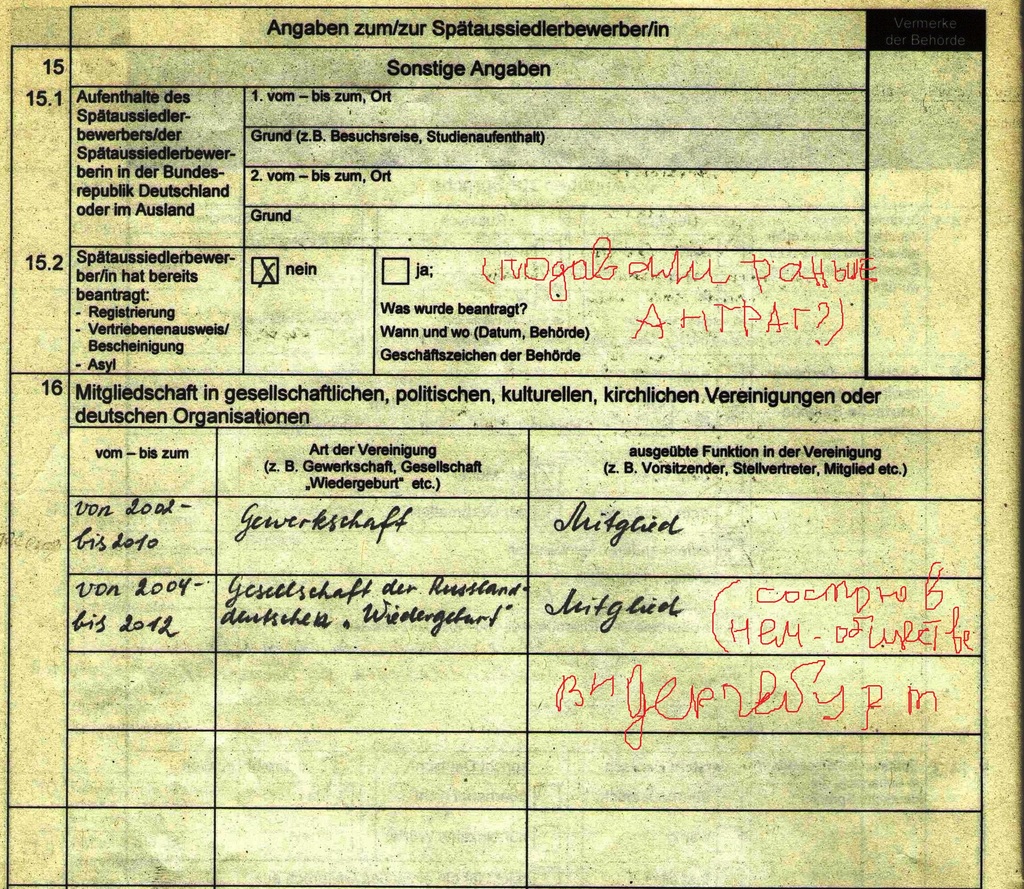 Angaben zum/zur Spätaussiedlerbewerber/in
Vermerke
der Behörde
15
Sonstige Angaben
15.1
Aufenthalte des
Spätaussiedler-
bewerbers/der
Spätaussiedlerbewer-
berin in der Bundes-
republik Deutschland
oder im Ausland
1. vom – bis zum, Ort
Grund (z.B. Besuchsreise, Studienaufenthalt)
2. vom – bis zum, Ort
Grund
15.2
Spätaussiedlerbewer-
ber/in hat bereits
beantragt:
- Registrierung
- Vertriebenenausweis/
Bescheinigung
- Asyl
X nein
ja;
Was wurde beantragt?
Wann und wo (Datum, Behörde)
Geschäftszeichen der Behörde
(подавали раньше
АНТРАГ?)
16
Mitgliedschaft in gesellschaftlichen, politischen, kulturellen, kirchlichen Vereinigungen oder
deutschen Organisationen
vom – bis zum
Art der Vereinigung
(z. B. Gewerkschaft, Gesellschaft
„Wiedergeburt" etc.)
ausgeübte Funktion in der Vereinigung
(z. B. Vorsitzender, Stellvertreter, Mitglied etc.)
von 2002-
bis 2010
Gewerkschaft
Mitglied
von 2004-
bis 2012
Gesellschaft der Russland-
deutschen „Wiedergeburt"
Mitglied
(состою в
нем-обществе
видергебурт